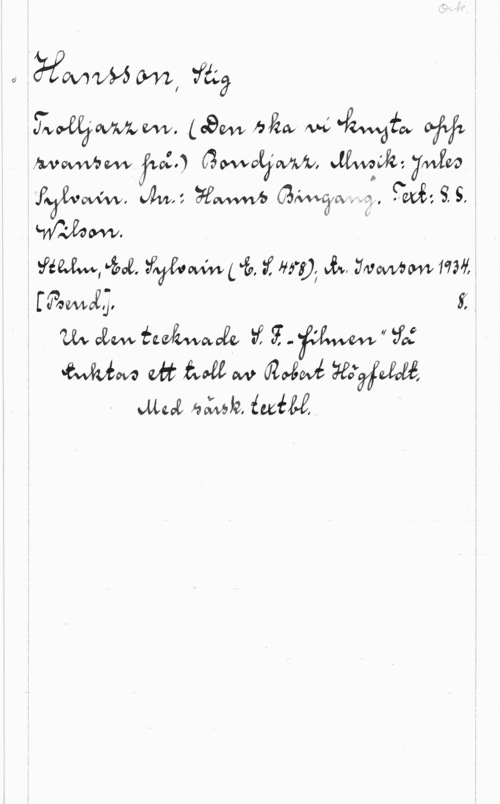 Ork.
Hansson, Stig
Trolljazzen. (Den ska vi knyta opp
svansen på.) Bondjazz. Musik: Jules
Sylvain. Arr.: Hanns Bingang. Text: S. S.
Wilson.
Sthlm, Ed. Sylvain (E. S. 458); tr. Ivarson 1934.
[Pseud.]. 8.
Ur den tecknade S. F.-filmen "Så
tuktas ett troll av Robert Högfeldt.
Med särsk. textbl.